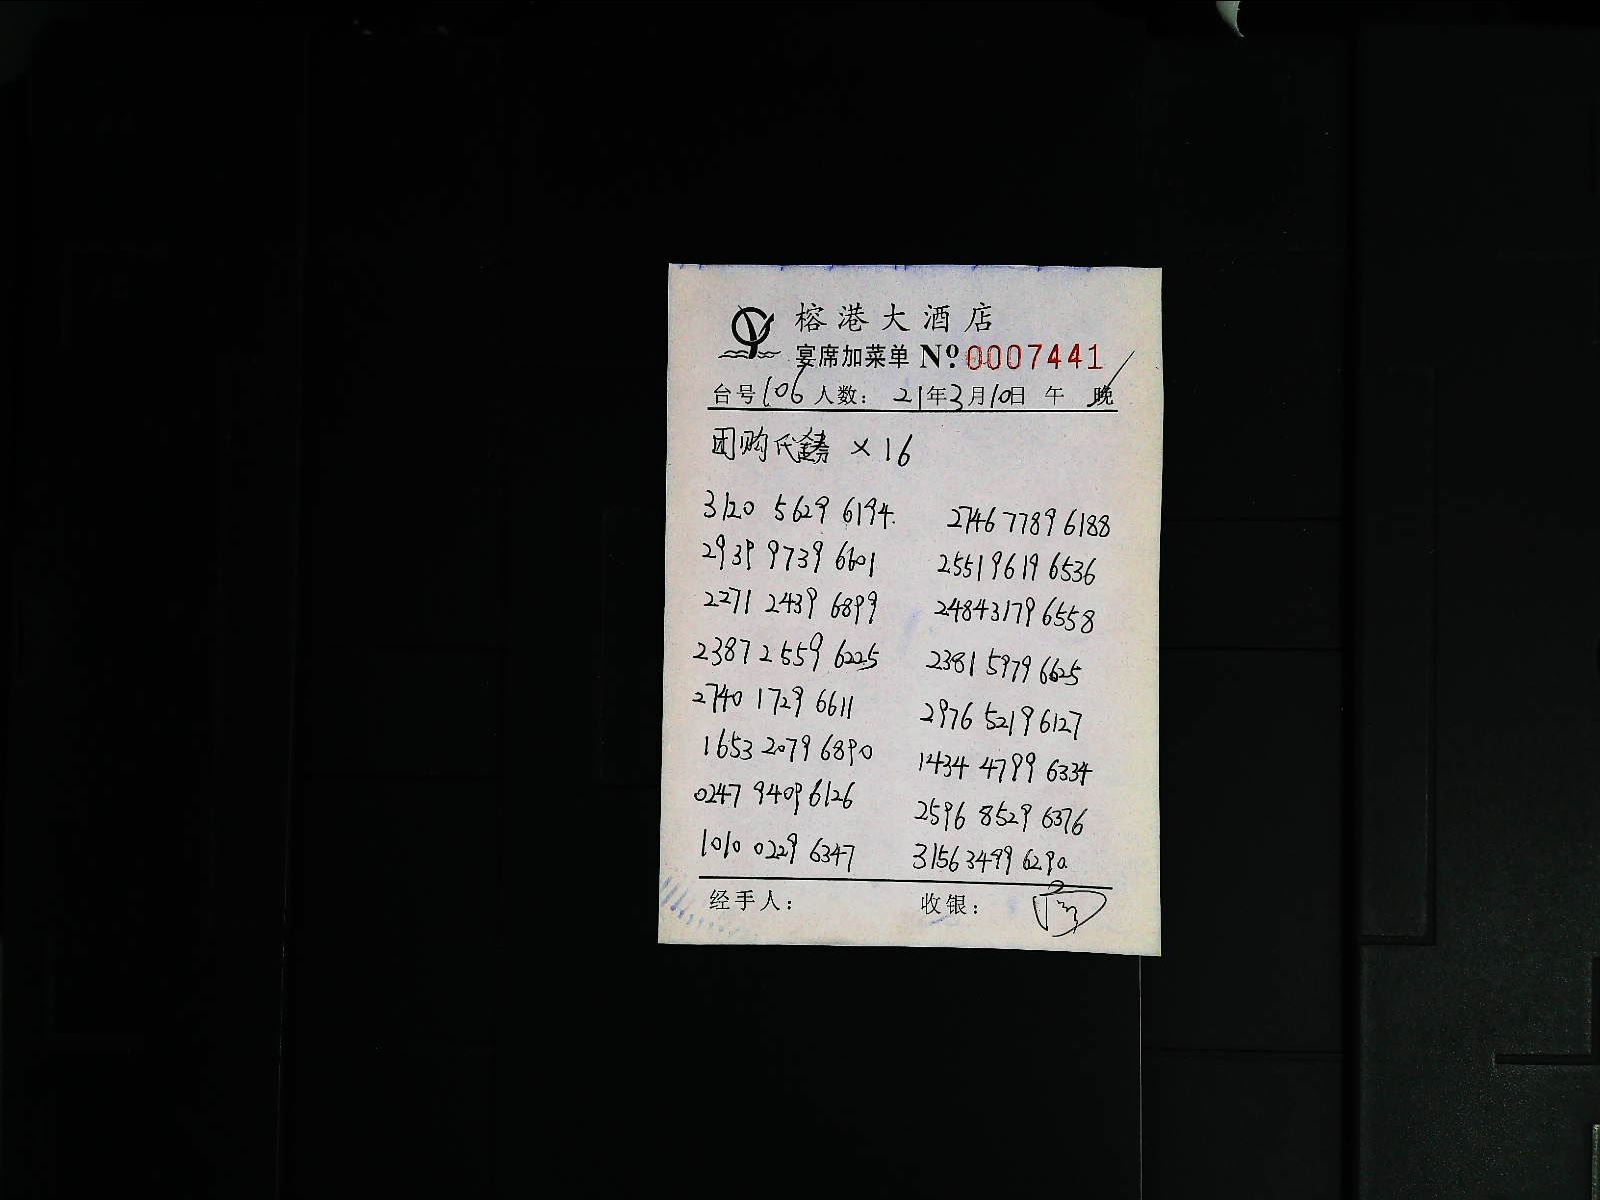 榕港大酒店
宴席加菜单 Nº 0007441
台号 106 人数: 21年3月10日 午 晚
团购代 × 16
3120 5629 6194. 2746 7789 6188
2939 9739 6601 2551 9619 6536
2271 2439 6899 2484 3179 6558
2387 2559 6225 2381 5979 6625
2740 1729 6611 2976 5219 6127
1653 2079 6890 1434 4799 6334
0247 9409 6126 2596 8529 6376
1010 0229 6347 3156 3499 6290
经手人: 收银: